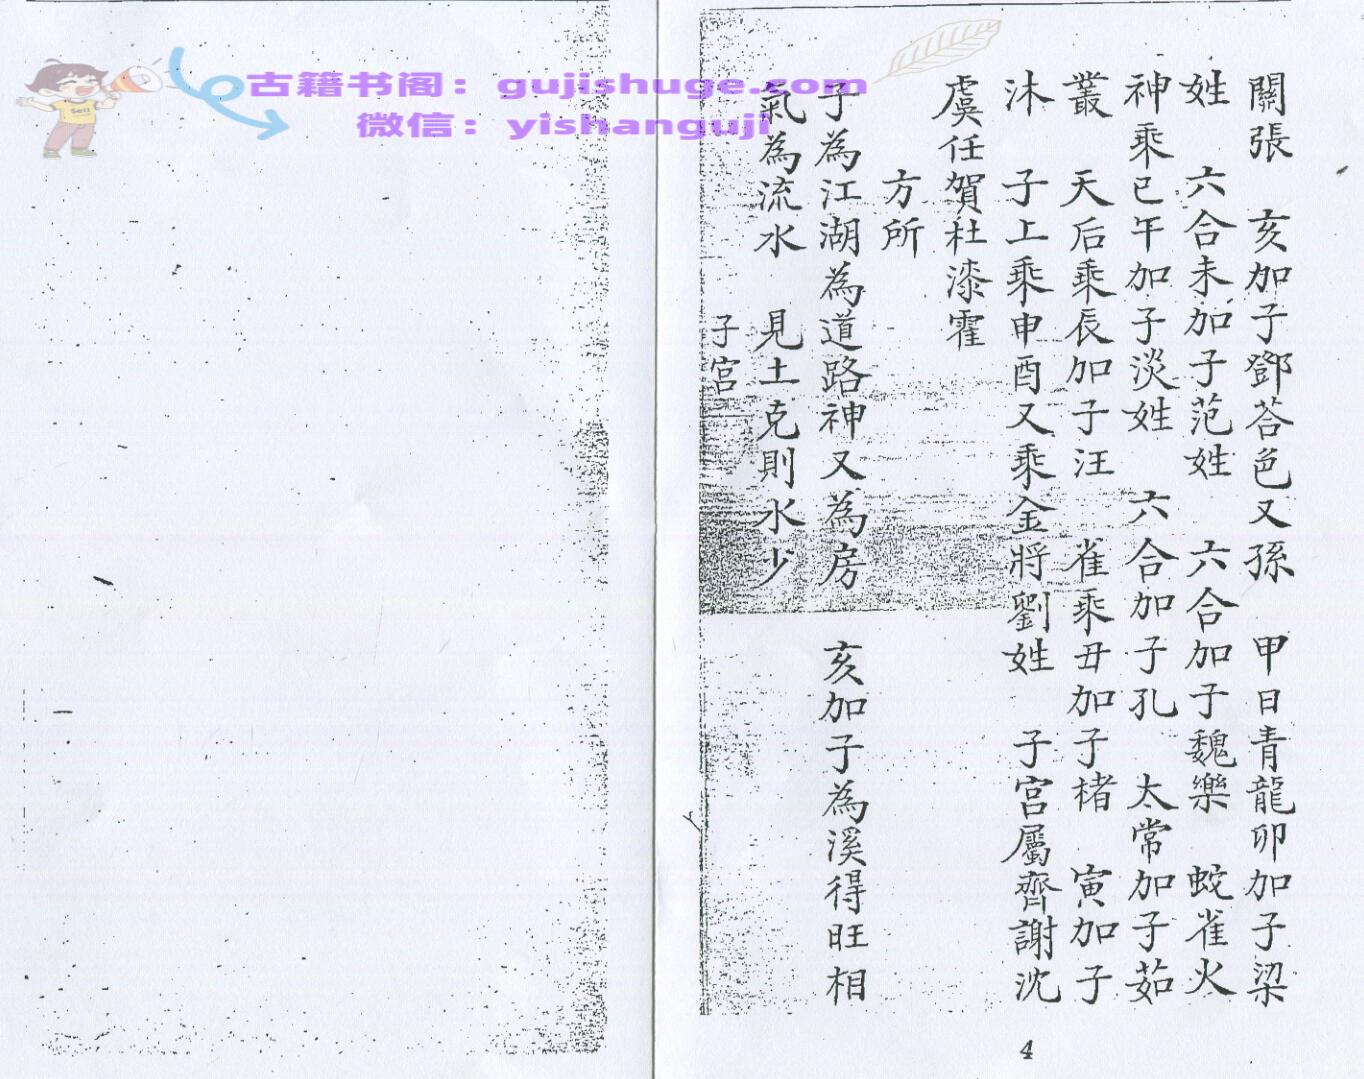 古籍书阁：gujishuge.com
微信：yishanguji
Sell
關張　亥加子鄧荅邑又孫　甲日青龍卯加子梁
姓　六合未加子范姓　六合加子魏樂　蛇雀火
神乘巳午加子淡姓　六合加子孔　太常加子茹
叢　天后乘辰加子汪　雀乘丑加子楮　寅加子
沐　子上乘申酉又乘金將劉姓　子宮屬齊謝沈
虞任賀杜漆霍
方所
子為江湖為道路神又為房　亥加子為溪得旺相
氣為流水　見土克則水少
子宮
4